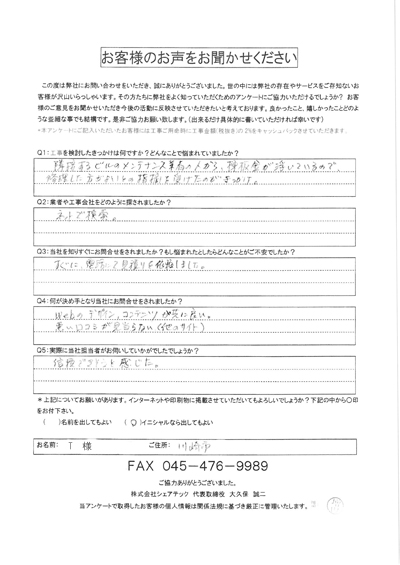 お客様のお声をお聞かせください
この度は弊社にお問い合わせをいただき、誠にありがとうございました。世の中には弊社の存在やサービスをご存知ないお
客様が沢山いらっしゃいます。その方たちに弊社をよく知っていただくためのアンケートにご協力いただけるでしょうか? お客
様のご意見をお聞かせいただき今後の活動に反映させていただきたいと考えております。良かったこと、嬉しかったことどのよ
うな些細な事でも結構です。是非ご協力お願い致します。(出来るだけ具体的に書いていただければ幸いです)
*本アンケートにご記入いただいたお客様には工事ご用命時に工事金額(税抜き)の2%をキャッシュバックさせていただきます。
Q1:工事を検討したきっかけは何ですか? どんなことで悩まれていましたか?
隣接するビルのメンテナンス業者の人から、棟板金が浮いているので、
修理した方がよいとの指摘を受けたのがきっかけ。
Q2:業者や工事会社をどのように探されましたか?
ネットで検索。
Q3:当社を知りすぐにお問合せをされましたか? もし悩まれたとしたらどんなことがご不安でしたか?
すぐに、電話にて見積りを依頼しました。
Q4:何が決め手となり当社にお問合せをされましたか?
Webのデザイン、コンテンツが共に良い。
悪い口コミが見当らない(他のサイト)
Q5:実際に当社担当者がお伺いしていかがでしたでしょうか?
信頼できそうと感じた。
*上記についてお願いがあります。インターネットや印刷物に掲載させていただいてもよろしいでしょうか? 下記の中から○印
をお付下さい。
( )名前を出してもよい (○)イニシャルなら出してもよい
お名前: T 様 ご住所: 川崎市
FAX 045-476-9989
ご協力ありがとうございました。
株式会社シェアテック 代表取締役 大久保 誠二
当アンケートで取得したお客様の個人情報は関係法規に基づき厳正に管理いたします。